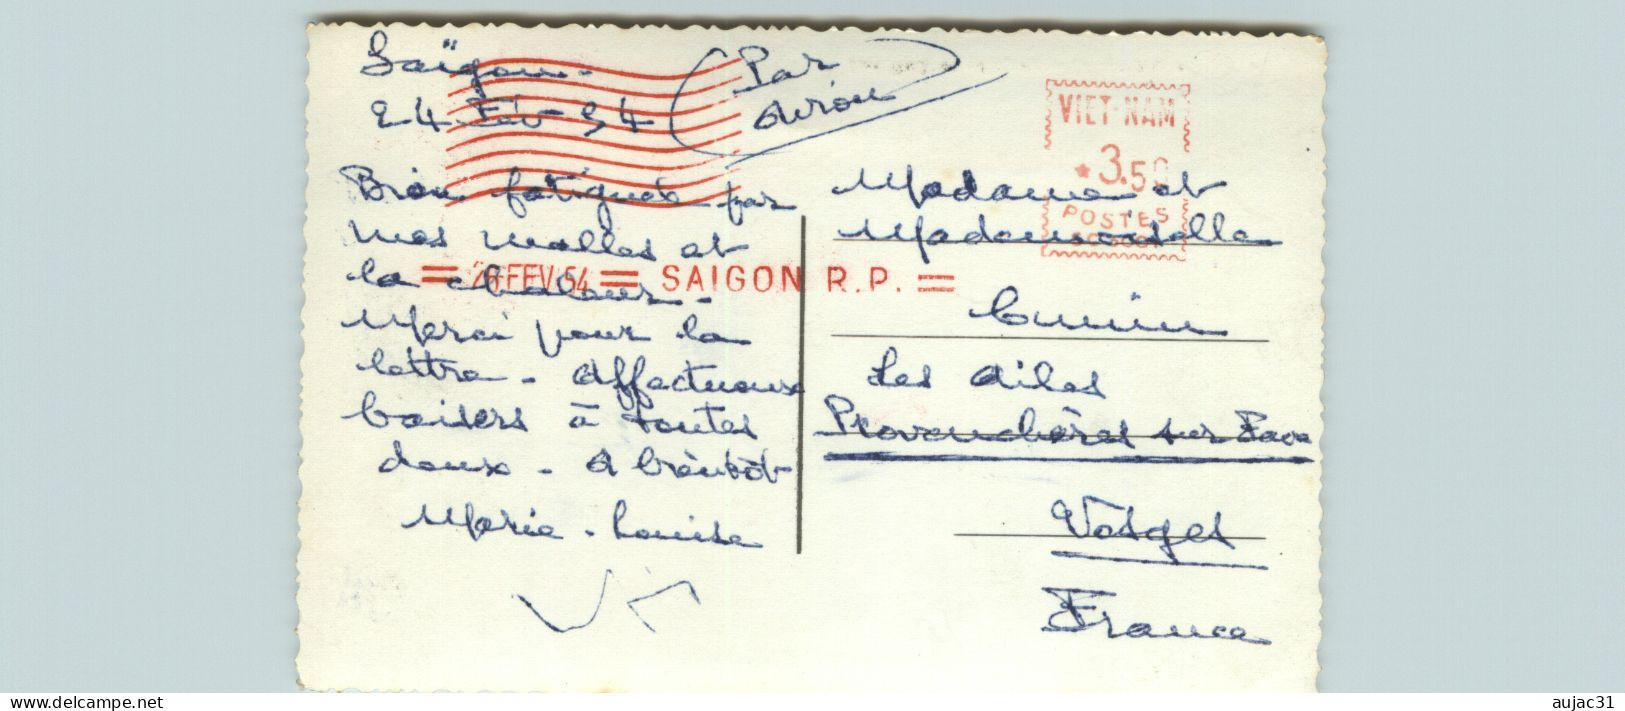 Saïgon -
24 Fév 54
Par
Avion
VIET-NAM
* 3.50
POSTES
= 26 FEV 54 = SAIGON R.P. =
Bien fatiguée par
mes malles et
la chaleur -
Merci pour la
lettre - Affectueux
baisers à toutes
deux - A bientôt
Marie-Louise
Madame et
Mademoiselle
Cunin
Les Ailes
Provenchères sur Fave
Vosges
France
aujac31